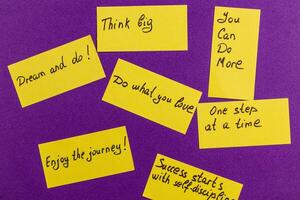 Think big
You
Can
Do
More
Dream and do!
Do what you love!
One step
at a time
Enjoy the journey!
Success starts
with self-discipline